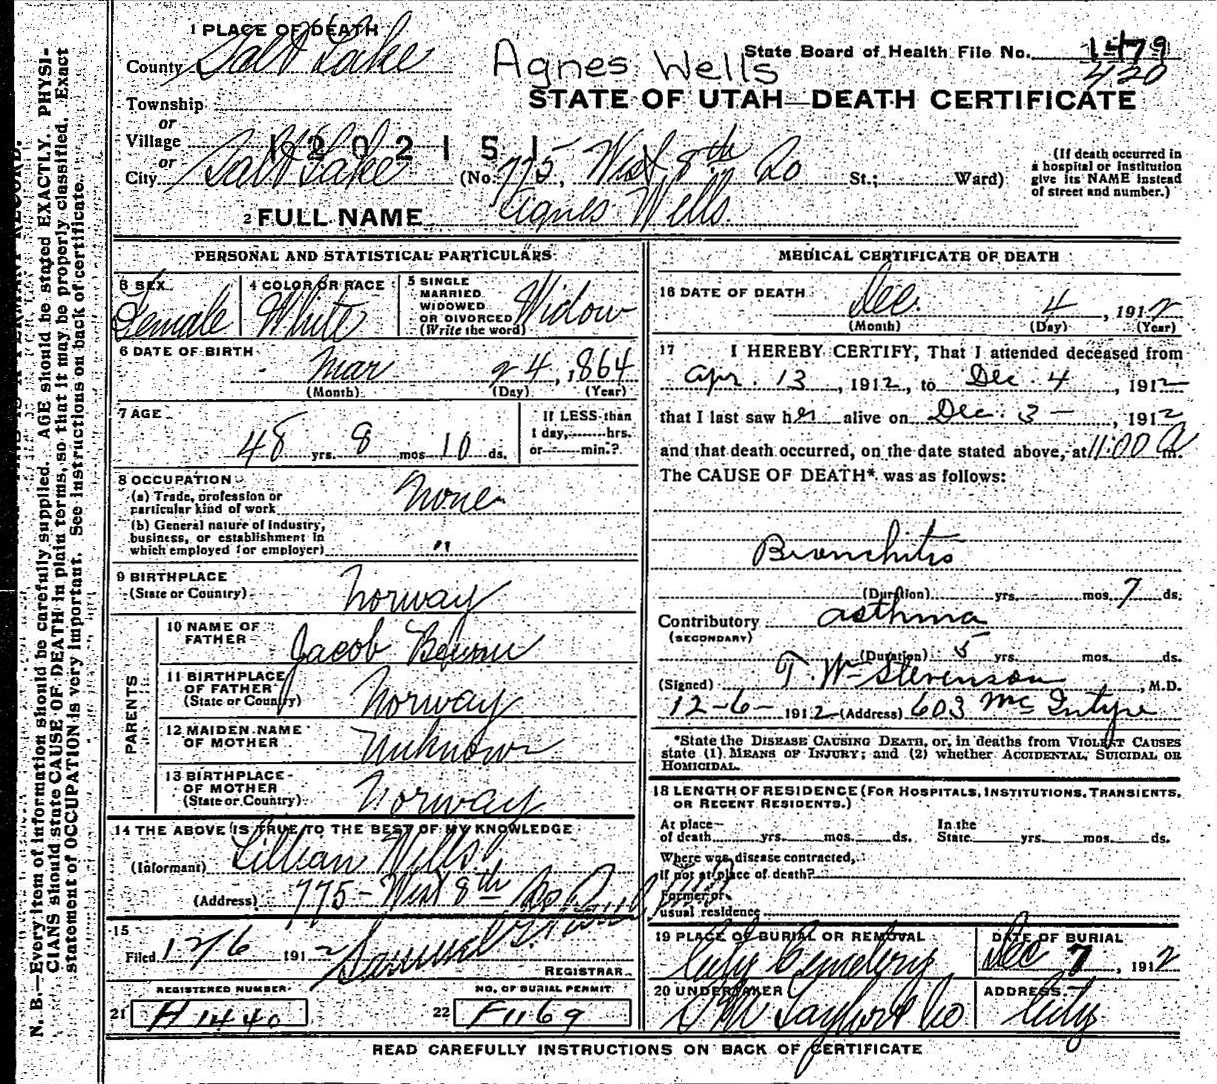 1 PLACE OF DEATH
County Salt Lake
Agnes Wells
State Board of Health File No. 1479
420
STATE OF UTAH—DEATH CERTIFICATE
Township
or
Village 1202151
or
City Salt Lake (No. 775, West 8th So St.; Ward)
(If death occurred in a hospital or institution give its NAME instead of street and number.)
2 FULL NAME Agnes Wells
PERSONAL AND STATISTICAL PARTICULARS
3 SEX Female
4 COLOR OR RACE White
5 SINGLE MARRIED WIDOWED OR DIVORCED (Write the word) Widow
6 DATE OF BIRTH
Mar 24, 1864
(Month) (Day) (Year)
7 AGE
48 yrs. 8 mos. 10 ds.
If LESS than 1 day, hrs. or min.?
8 OCCUPATION
(a) Trade, profession or particular kind of work None
(b) General nature of industry, business, or establishment in which employed (or employer) "
9 BIRTHPLACE
(State or Country) Norway
PARENTS
10 NAME OF FATHER Jacob
11 BIRTHPLACE OF FATHER (State or Country) Norway
12 MAIDEN NAME OF MOTHER Unknown
13 BIRTHPLACE OF MOTHER (State or Country) Norway
14 THE ABOVE IS TRUE TO THE BEST OF MY KNOWLEDGE
(Informant) Lillian Wells
(Address) 775 - West 8th So.
15
Filed 12/6 1912 Samuel
REGISTRAR
REGISTERED NUMBER
21 H 1440
NO. OF BURIAL PERMIT
22 F1169
MEDICAL CERTIFICATE OF DEATH
16 DATE OF DEATH Dec. 4, 1912
(Month) (Day) (Year)
17 I HEREBY CERTIFY, That I attended deceased from
Apr. 13, 1912, to Dec. 4, 1912
that I last saw her alive on Dec. 3 -, 1912
and that death occurred, on the date stated above, at 11:00 A m.
The CAUSE OF DEATH* was as follows:
Bronchitis
(Duration) yrs. mos. 7 ds.
Contributory asthma
(SECONDARY)
(Duration) 5 yrs. mos. ds.
(Signed) T. W. Stevenson, M.D.
12-6- 1912 (Address) 603 McIntyre
*State the DISEASE CAUSING DEATH, or, in deaths from VIOLENT CAUSES
state (1) MEANS OF INJURY; and (2) whether ACCIDENTAL, SUICIDAL OR
HOMICIDAL.
18 LENGTH OF RESIDENCE (FOR HOSPITALS, INSTITUTIONS, TRANSIENTS,
OR RECENT RESIDENTS.)
At place of death yrs. mos. ds. In the State yrs. mos. ds.
Where was disease contracted,
if not at place of death?
Former or
usual residence
19 PLACE OF BURIAL OR REMOVAL
City Cemetery
DATE OF BURIAL
Dec 7, 1912
20 UNDERTAKER
Taylor & Co
ADDRESS
City
READ CAREFULLY INSTRUCTIONS ON BACK OF CERTIFICATE
N. B.—Every item of information should be carefully supplied. AGE should be stated EXACTLY. PHYSI-
CIANS should state CAUSE OF DEATH in plain terms, so that it may be properly classified. Exact
statement of OCCUPATION is very important. See instructions on back of certificate.